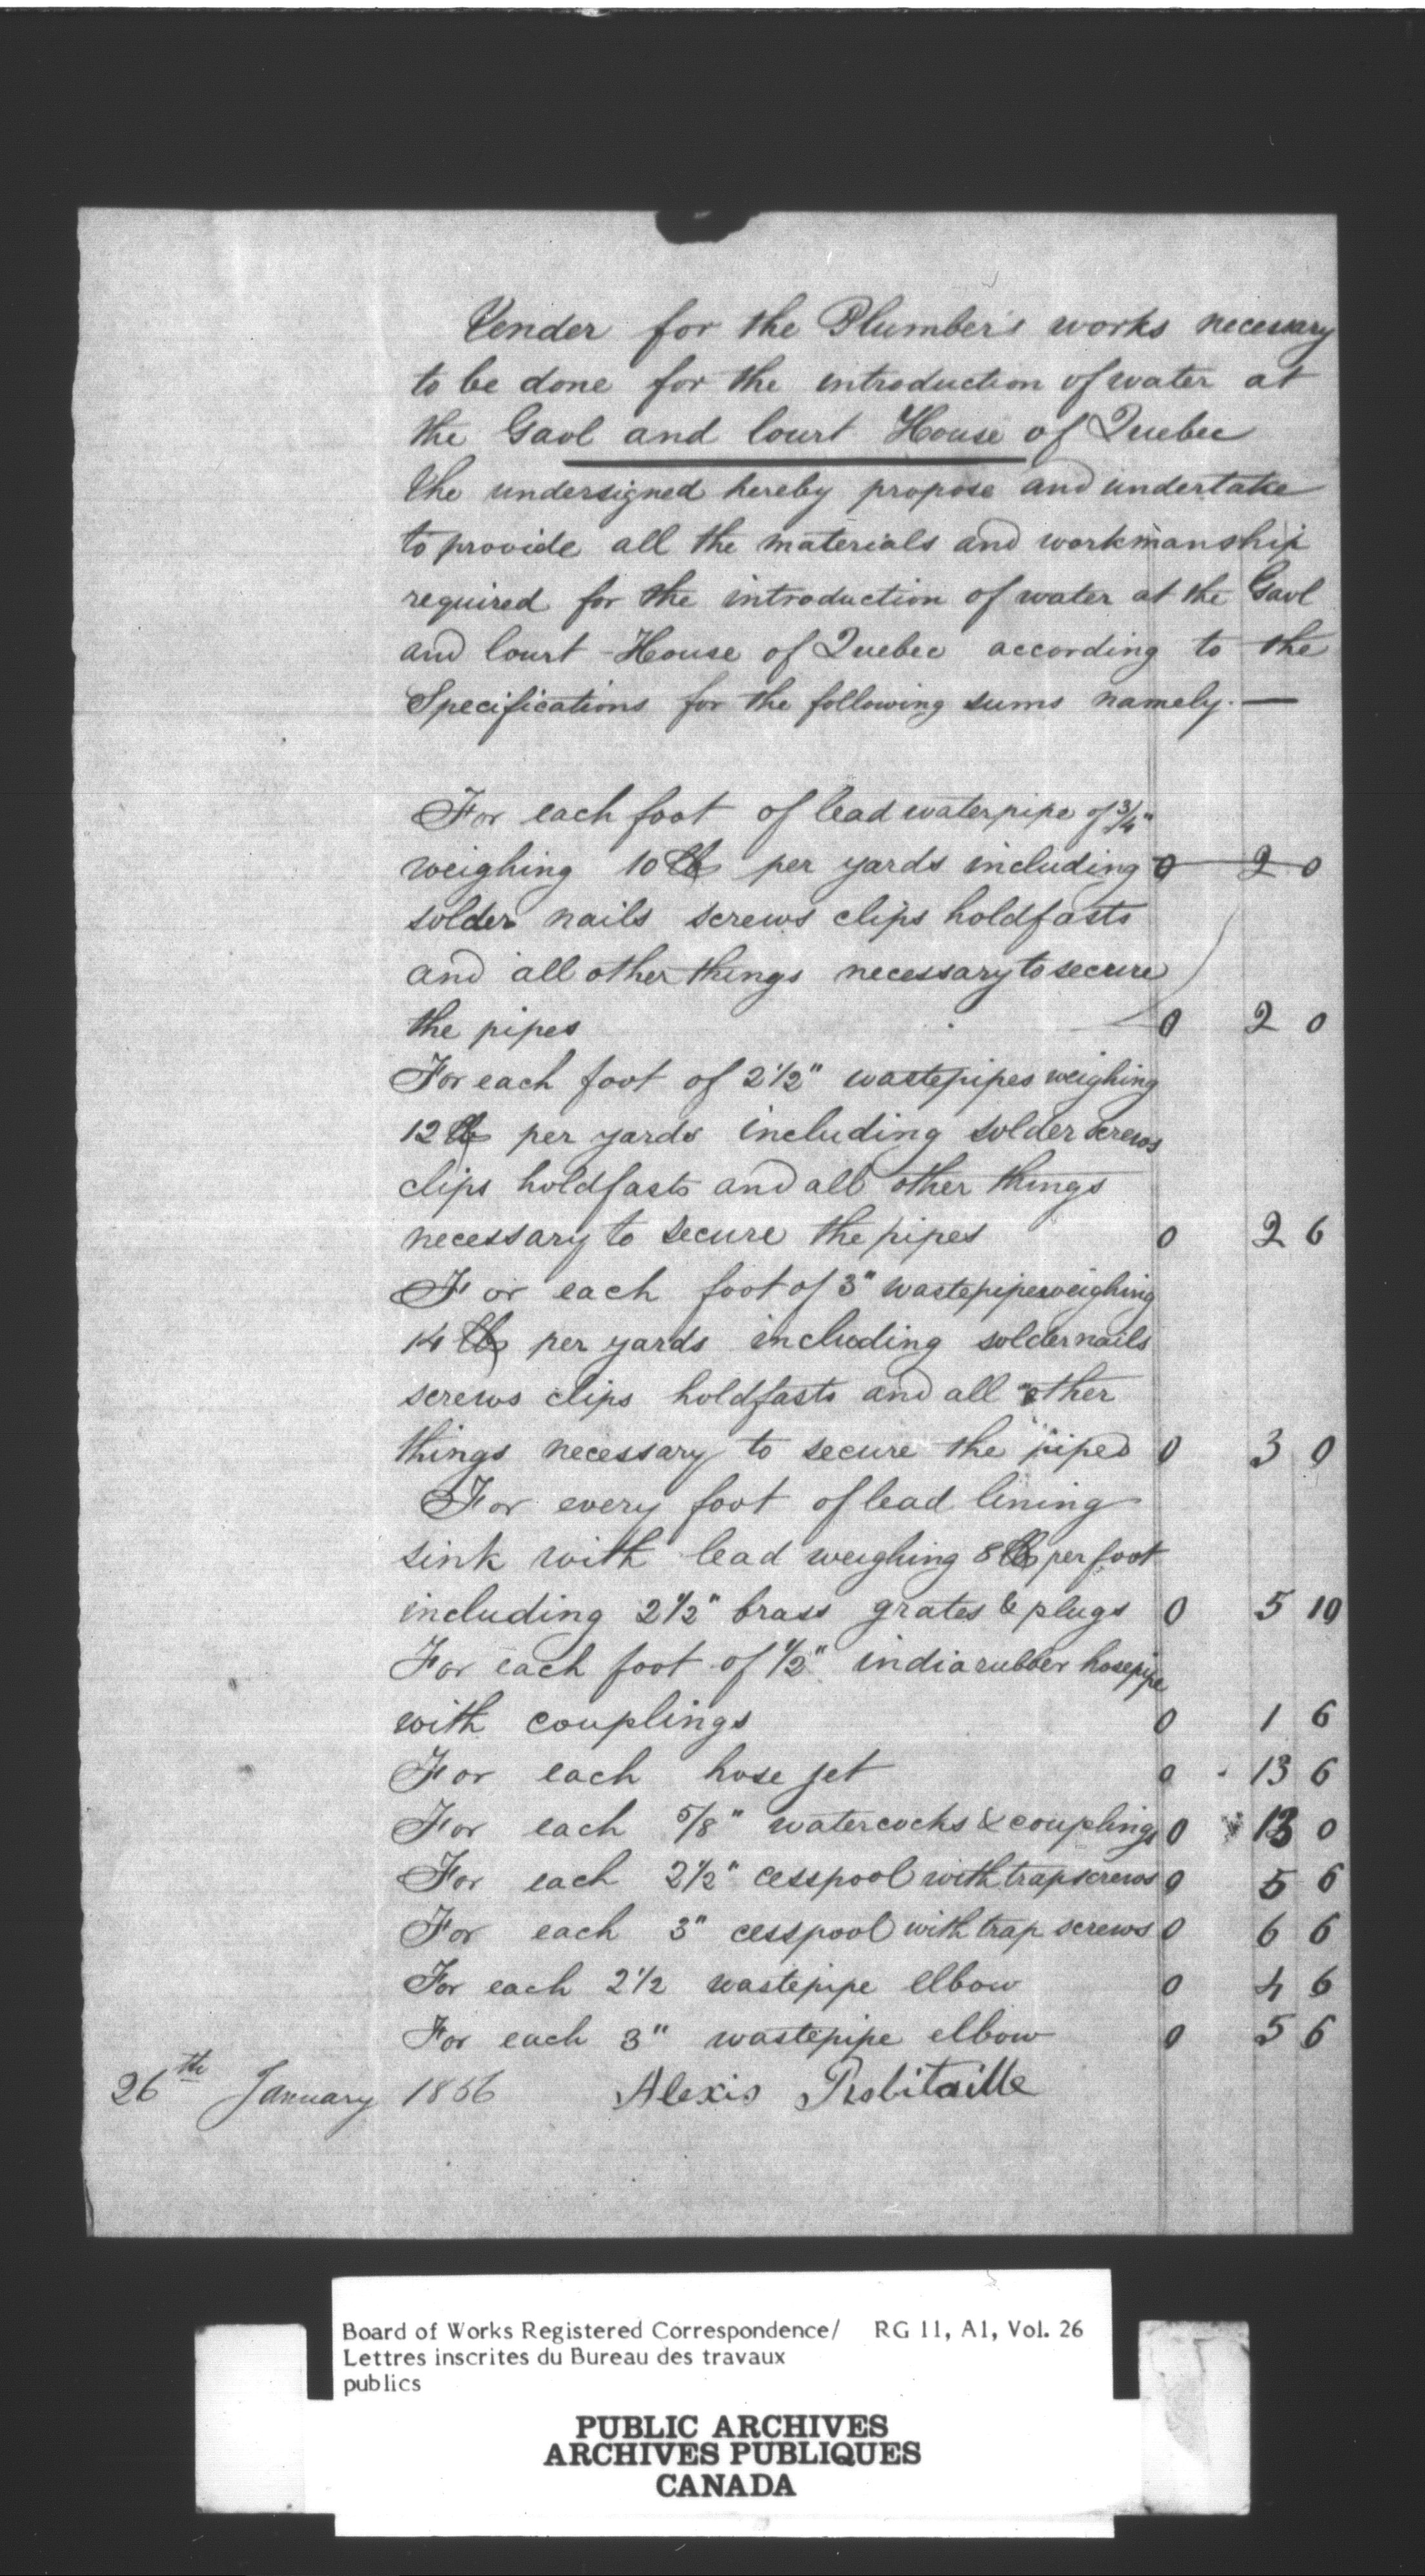 Tender for the Plumber's works necessary
to be done for the introduction of water at
the Gaol and Court House of Quebec
The undersigned hereby propose and undertake
to provide all the materials and workmanship
required for the introduction of water at the Gaol
and Court House of Quebec according to the
Specifications for the following sums namely. —
For each foot of lead waterpipe of 3/4"
weighing 10 lb per yards including 0 2 0
solder nails screws clips holdfasts
and all other things necessary to secure
the pipes 0 2 0
For each foot of 2 1/2" wastepipes weighing
12 lb per yards including solder screws
clips holdfasts and all other things
necessary to secure the pipes 0 2 6
For each foot of 3" wastepipes weighing
14 lb per yards including solder nails
screws clips holdfasts and all other
things necessary to secure the pipes 0 3 0
For every foot of lead lining
sink with lead weighing 8 lb per foot
including 2 1/2" brass grates & plugs 0 5 10
For each foot of 1/2" indiarubber hosepipe
with couplings 0 1 6
For each hose jet 0 13 6
For each 5/8" watercocks & couplings 0 13 0
For each 2 1/2" cesspool with trap screws 0 5 6
For each 3" cesspool with trap screws 0 6 6
For each 2 1/2 wastepipe elbow 0 4 6
For each 3" wastepipe elbow 0 5 6
26th January 1856 Alexis Robitaille
Board of Works Registered Correspondence/ RG 11, A1, Vol. 26
Lettres inscrites du Bureau des travaux
publics
PUBLIC ARCHIVES
ARCHIVES PUBLIQUES
CANADA